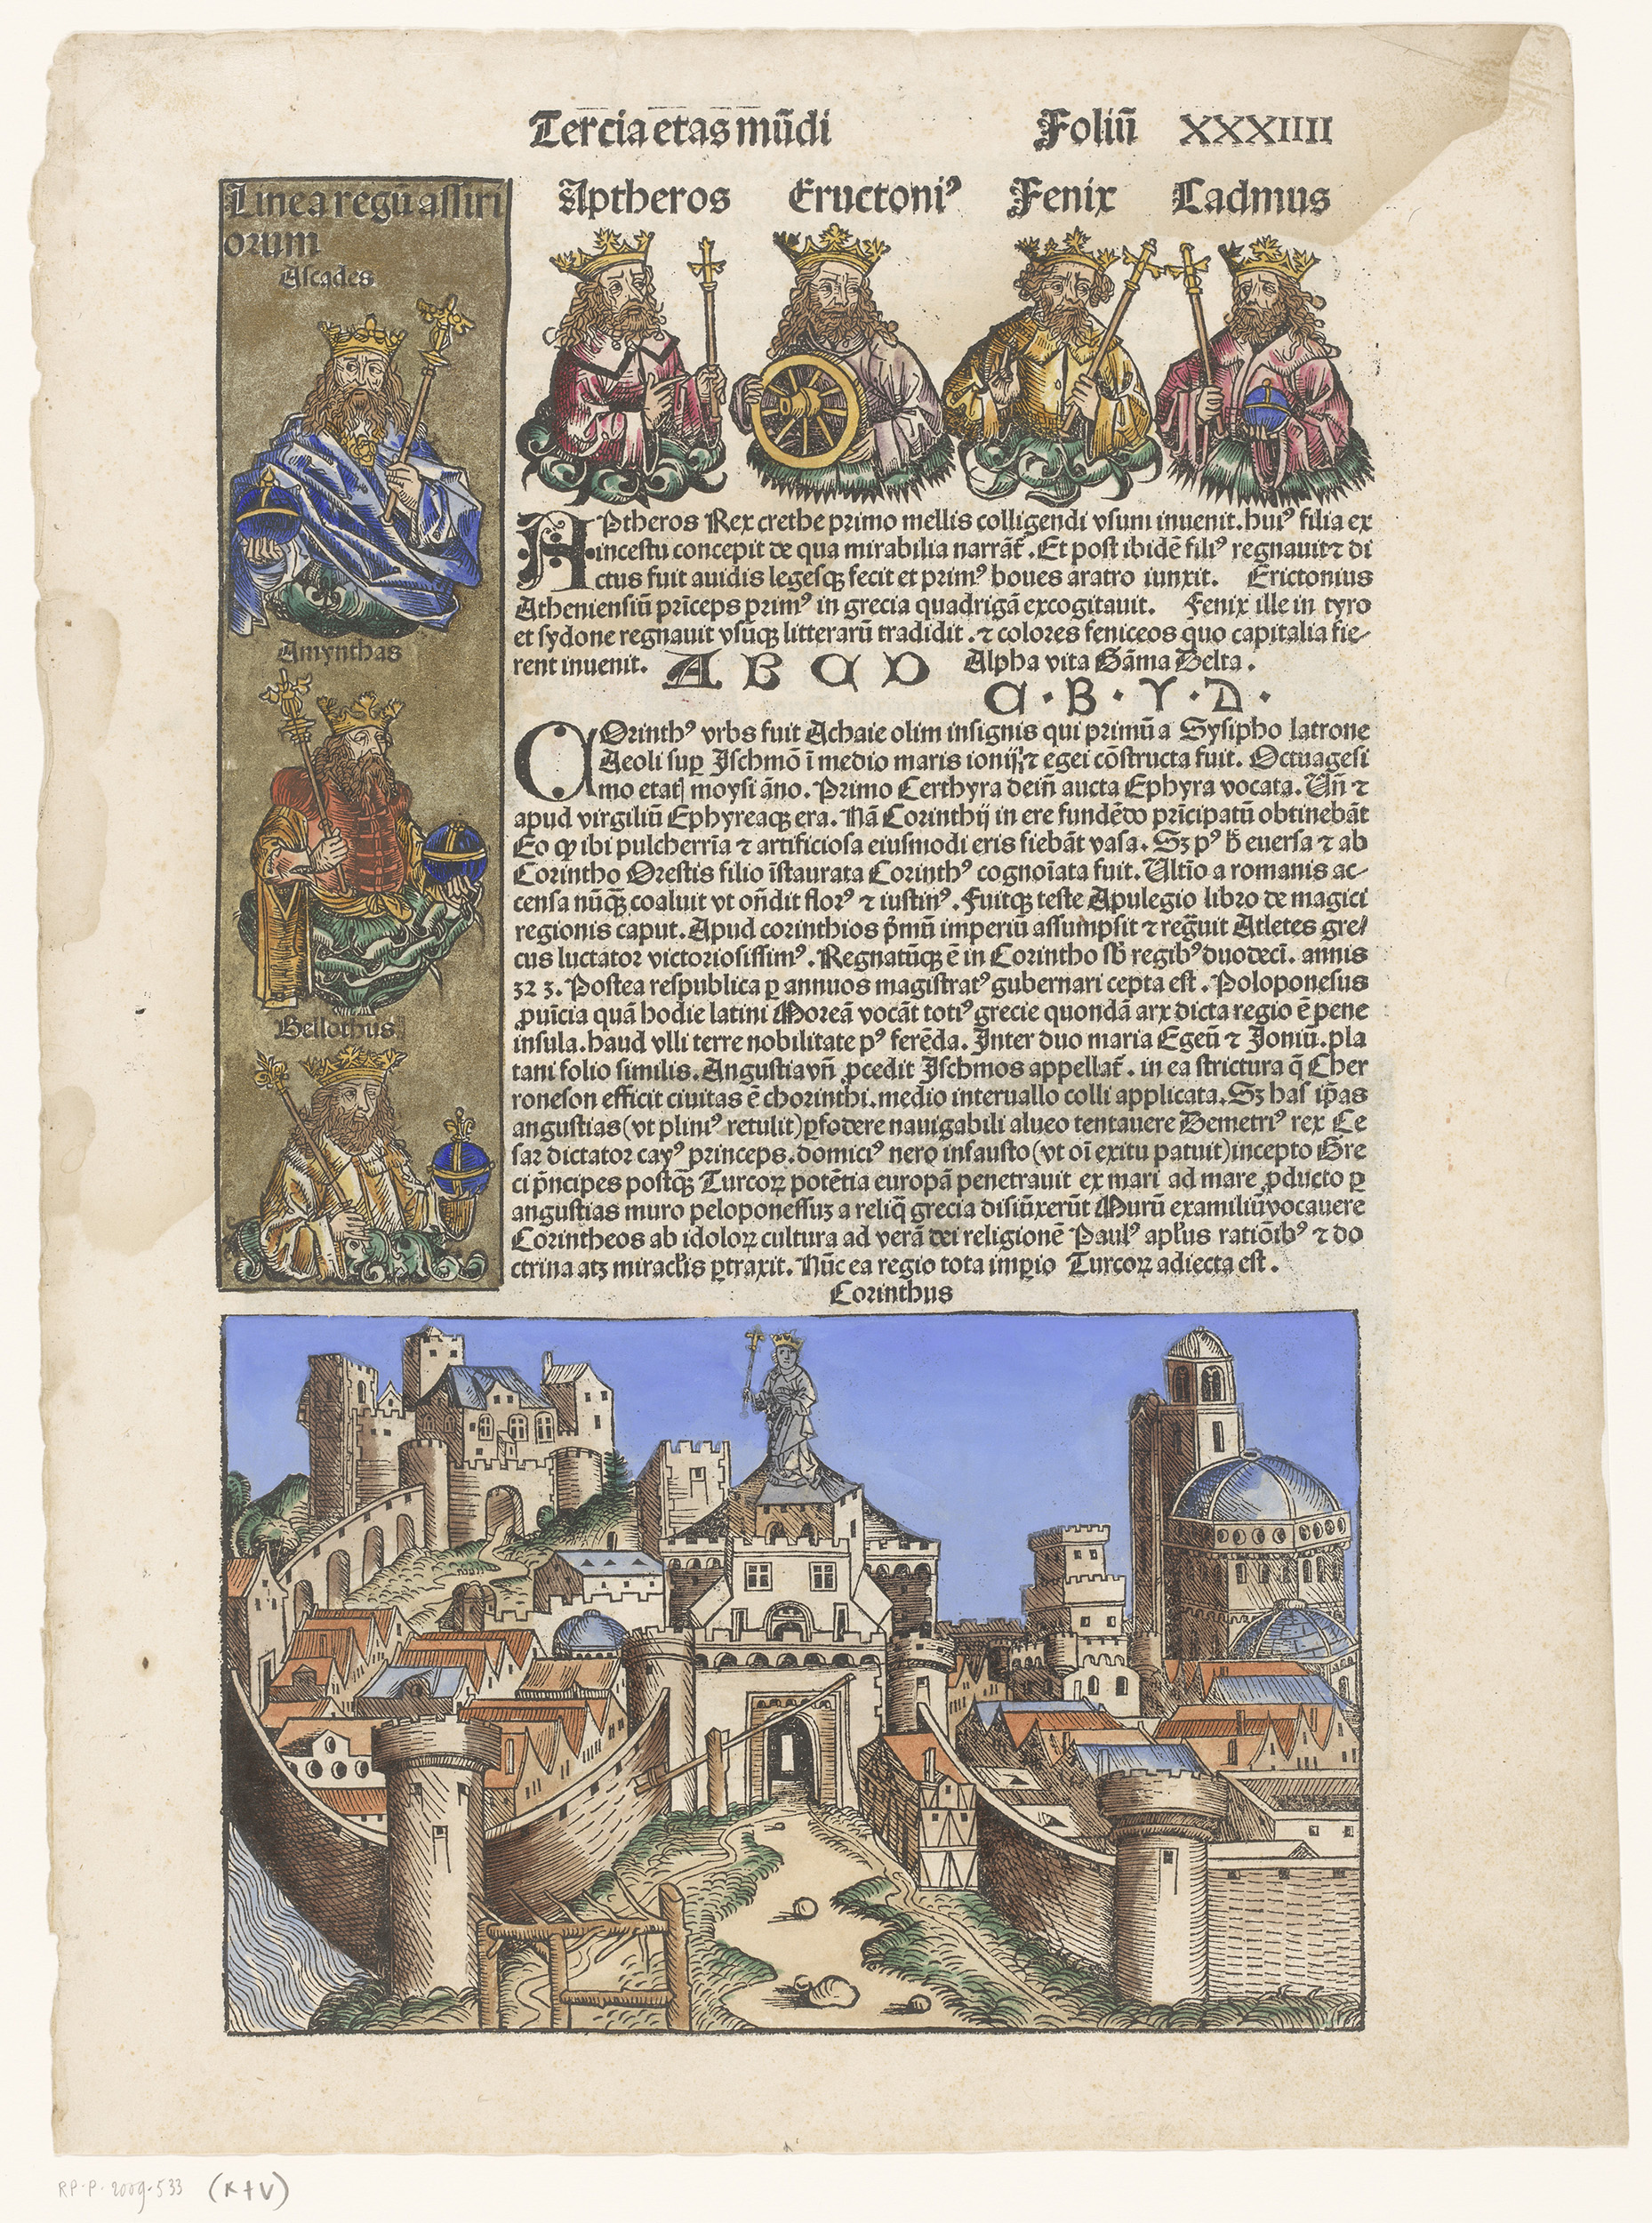 Tercia etas mūdi Foliū XXXIIII
Linea regū assiri
orum
Ascades
Amynthas
Bellothus
Aptheros Eructoniꝰ Fenix Cadmus
APtheros Rex crethe primo mellis colligendi vsum inuenit. huiꝰ filia ex
incestu concepit de qua mirabilia narrāt̄. Et post ibidē filiꝰ regnauit ⁊ di
ctus fuit auidis legesqꝫ fecit et primꝰ boues aratro iunxit. Erictonius
Atheniensiū prīceps primꝰ in grecia quadrigā excogitauit. Fenix ille in tyro
et sydone regnauit vsūqꝫ litterarū tradidit. ⁊ colores feniceos quo capitalia fie-
rent inuenit. A B C D Alpha vita Gāma Delta.
α · B · ϒ · D ·
COrinthꝰ vrbs fuit Achaie olim insignis qui primū a Sysipho latrone
Aeoli suꝑ Ischmō ī medio maris ionij ⁊ egei cōstructa fuit. Octuagesi
mo etatꝭ moysi āno. Primo Certhyra dein̄ aucta Ephyra vocata. Vn̄ ⁊
apud virgiliū Ephyreaqꝫ era. Nā Corinthij in ere fundēdo prīcipatū obtinebāt
Eo ꝙ ibi pulcherrīa ⁊ artificiosa eiusmodi eris fiebāt vasa. Sꝫ pꝰ h̄ euersa ⁊ ab
Corintho Orestis filio īstaurata Corinthꝰ cognoīata fuit. Vltīo a romanis ac-
censa nūqꝫ̄ coaluit vt on̄dit florꝰ ⁊ iustinꝰ. Fuitqꝫ teste Apulegio libro de magici
regionis caput. Apud corinthios p̄mū imperiū assumpsit ⁊ reḡuit Atletes gre/
cus luctator victoriosissimꝰ. Regnatūqꝫ ē in Corintho sb̄ regibꝰ duodecī. annis
323. Postea respublica ꝑ annuos magistratꝰ gubernari cepta est. Poloponesus
ꝓuīcia quā hodie latini Moreā vocāt totiꝰ grecie quondā arx dicta regio ē pene
insula. haud vlli terre nobilitate pꝰ ferēda. Inter duo maria Egeū ⁊ Joniū. pla
tani folio similis. Angustia vn̄ ꝓcedit Ischmos appellat̄. in ea strictura q̄ Cher
roneson efficit ciuitas ē chorinthi. medio interuallo colli applicata. Sꝫ has ip̄as
angustias (vt pliniꝰ retulit) ꝑfodere nauigabili alueo tentauere Demetriꝰ rex Ce
sar dictator cayꝰ princeps. domiciꝰ nero infausto (vt oī exitu patuit) incepto Gre
ci p̄ncipes postqꝫ̄ Turcoꝝ potētia europā penetrauit ex mari ad mare ꝓducto ꝑ
angustias muro peloponessuꝫ a reliq̄ grecia disiūxerūt Murū examiliū vocauere
Corintheos ab idoloꝝ cultura ad verā dei religionē Paulꝰ apl̄us ratiōibꝰ ⁊ do
ctrina atꝫ miracl̄is ꝑtraxit. Nūc ea regio tota imꝑio Turcoꝝ adiecta est.
Corinthus
RP-P-2009-533 (R+V)